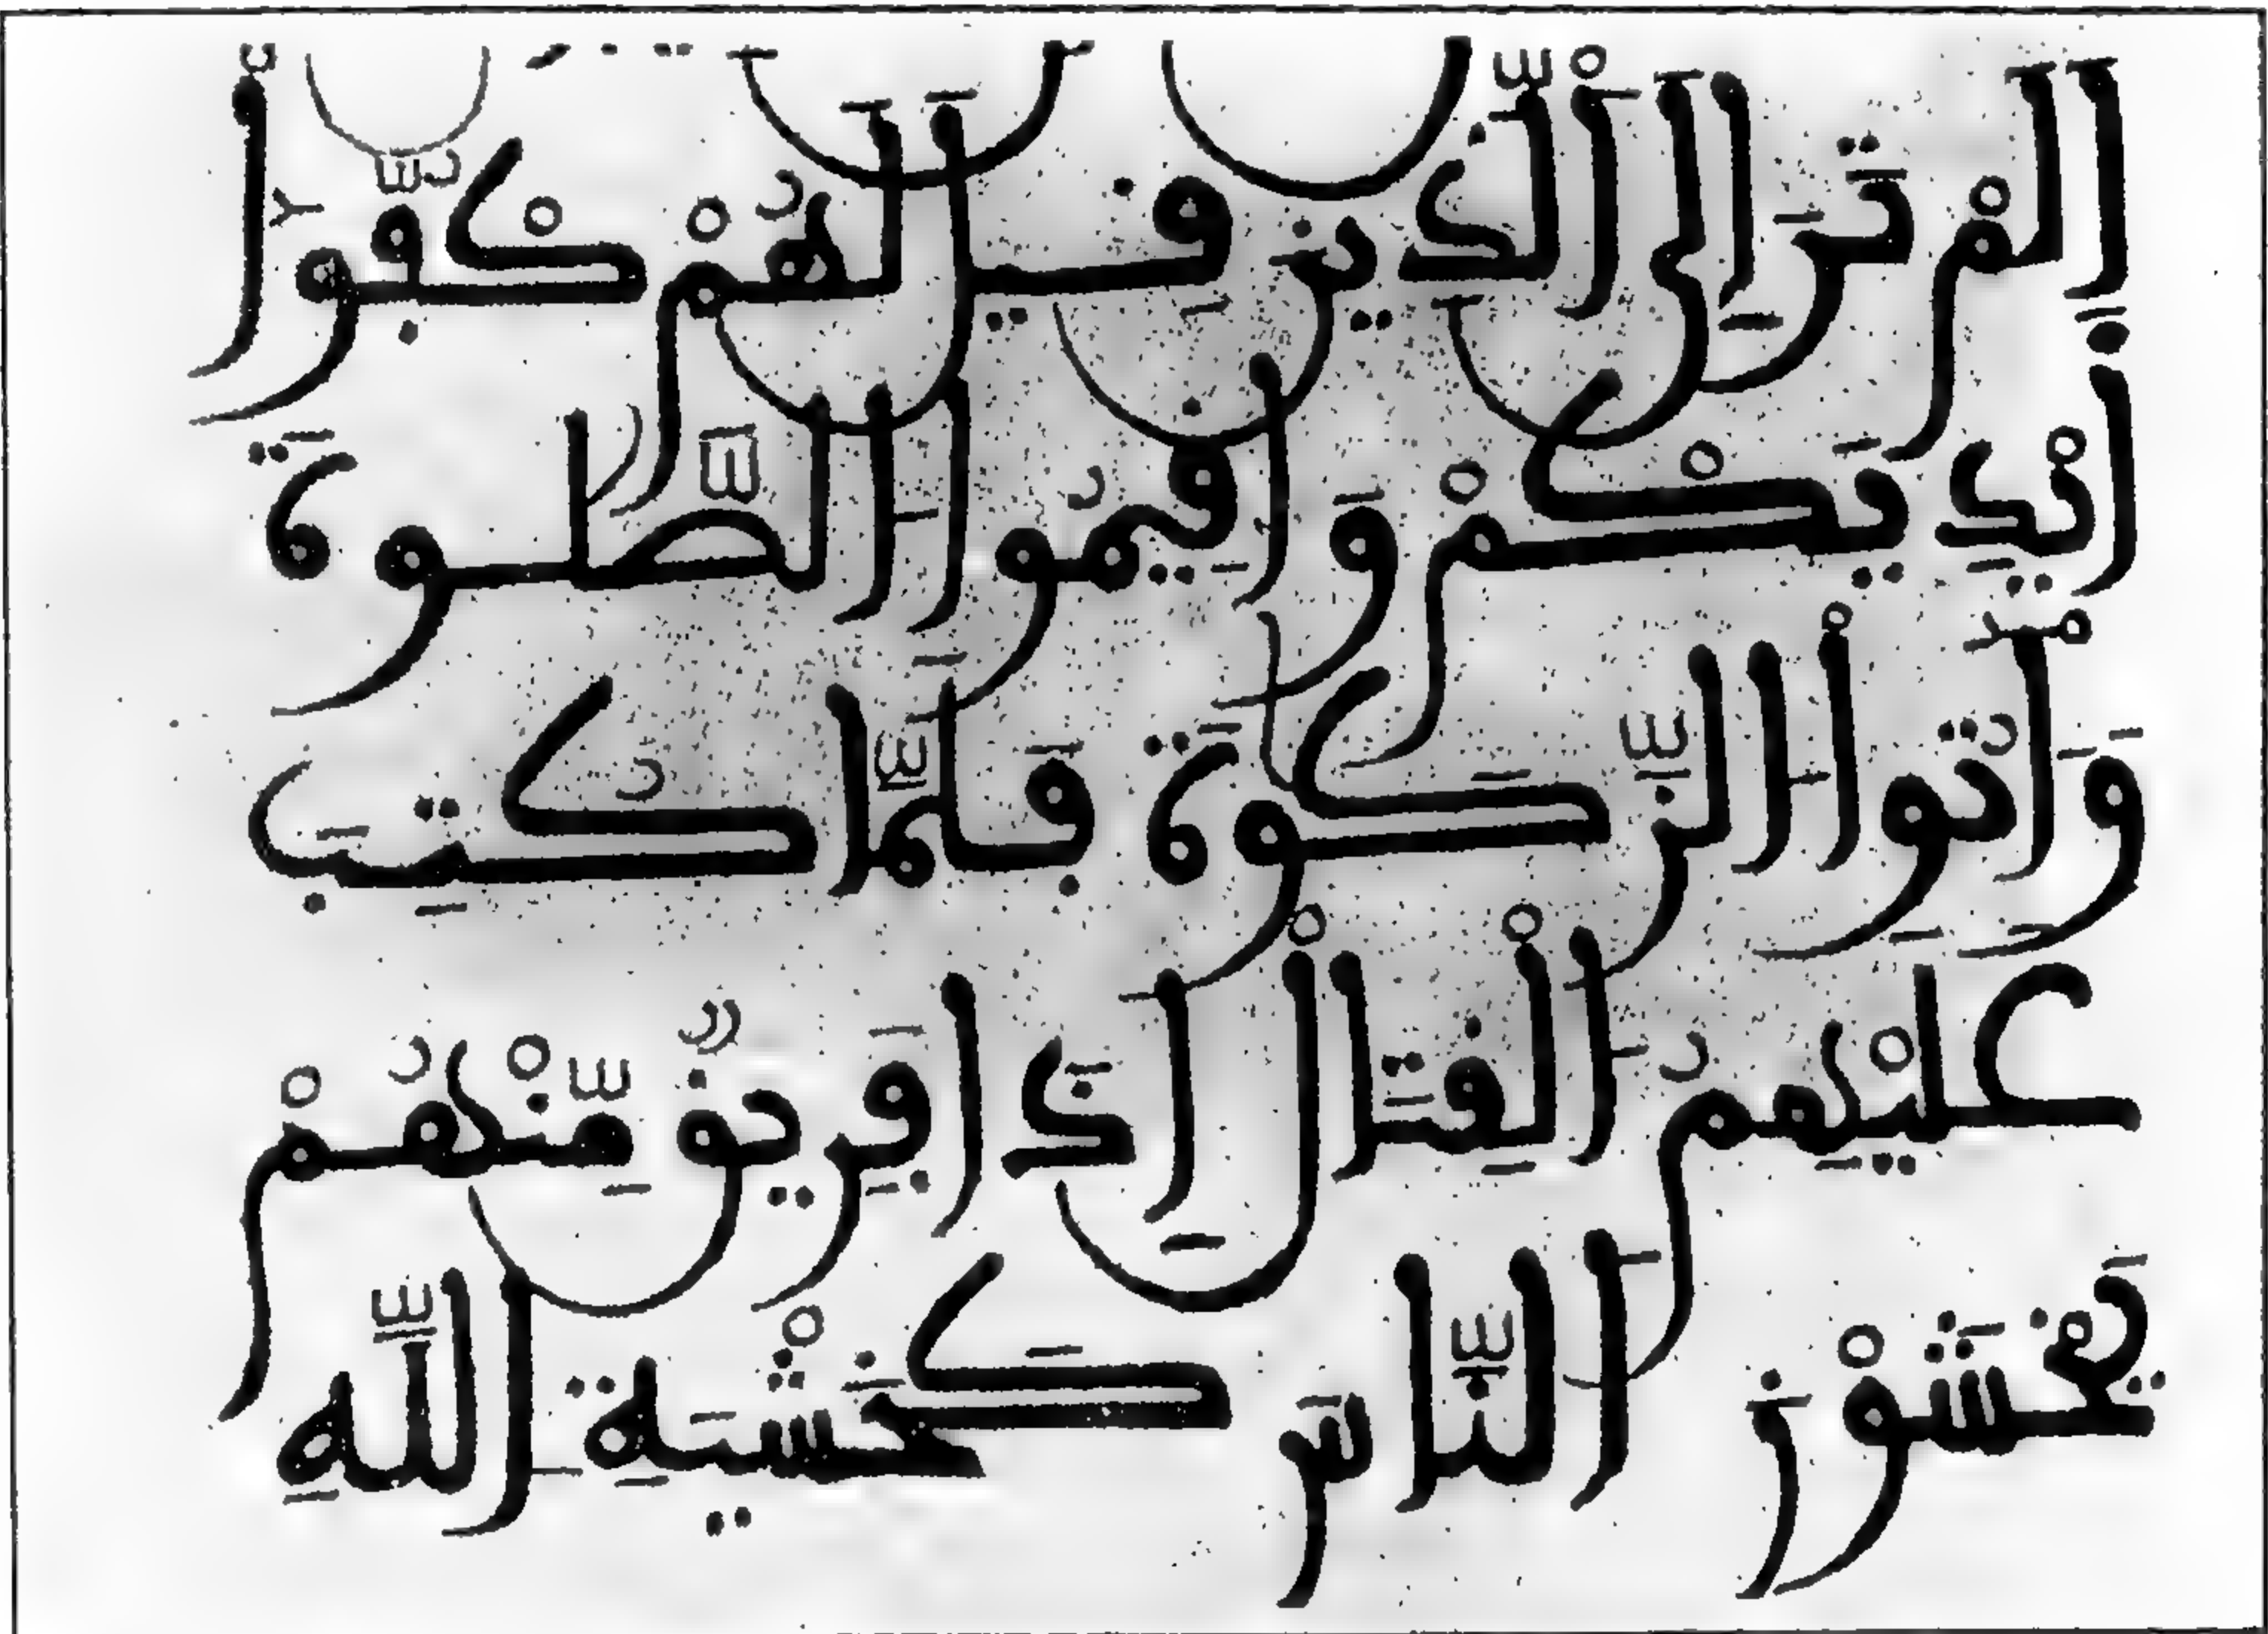 اَلَمْ تَرَ اِلَى اَ۬لذِينَ قِيلَ لَهُمْ كُفُّوٓاْ
أَيْدِيَكُمْ وَأَقِيمُواْ اُ۬لصَّلَوٰةَ
وَءَاتُواْ اُ۬لزَّكَوٰةَ فَلَمَّا كُتِبَ
عَلَيْهِمُ اُ۬لْقِتَالُ إِذَا فَرِيقٌ مِّنْهُمْ
يَخْشَوْنَ اَ۬لنَّاسَ كَخَشْيَةِ اِ۬للَّهِ